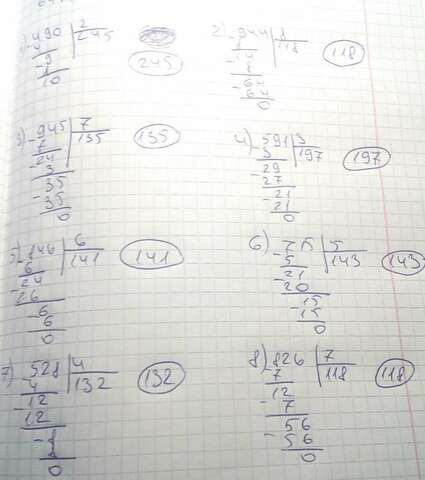 1) -490 | 2
4 | 245
-9
8
10
245
2) -944 | 8
8 | 118
-14
8
-64
64
0
118
3) -945 | 7
7 | 135
-24
3
-35
35
0
135
4) -591 | 3
3 | 197
-29
27
-21
21
0
197
5) -846 | 6
6 | 141
-24
26
-6
6
0
141
6) -715 | 5
5 | 143
-21
-20
15
-15
0
143
7) -528 | 4
4 | 132
-12
12
-8
8
0
132
8) -826 | 7
7 | 118
-12
7
56
-56
0
118